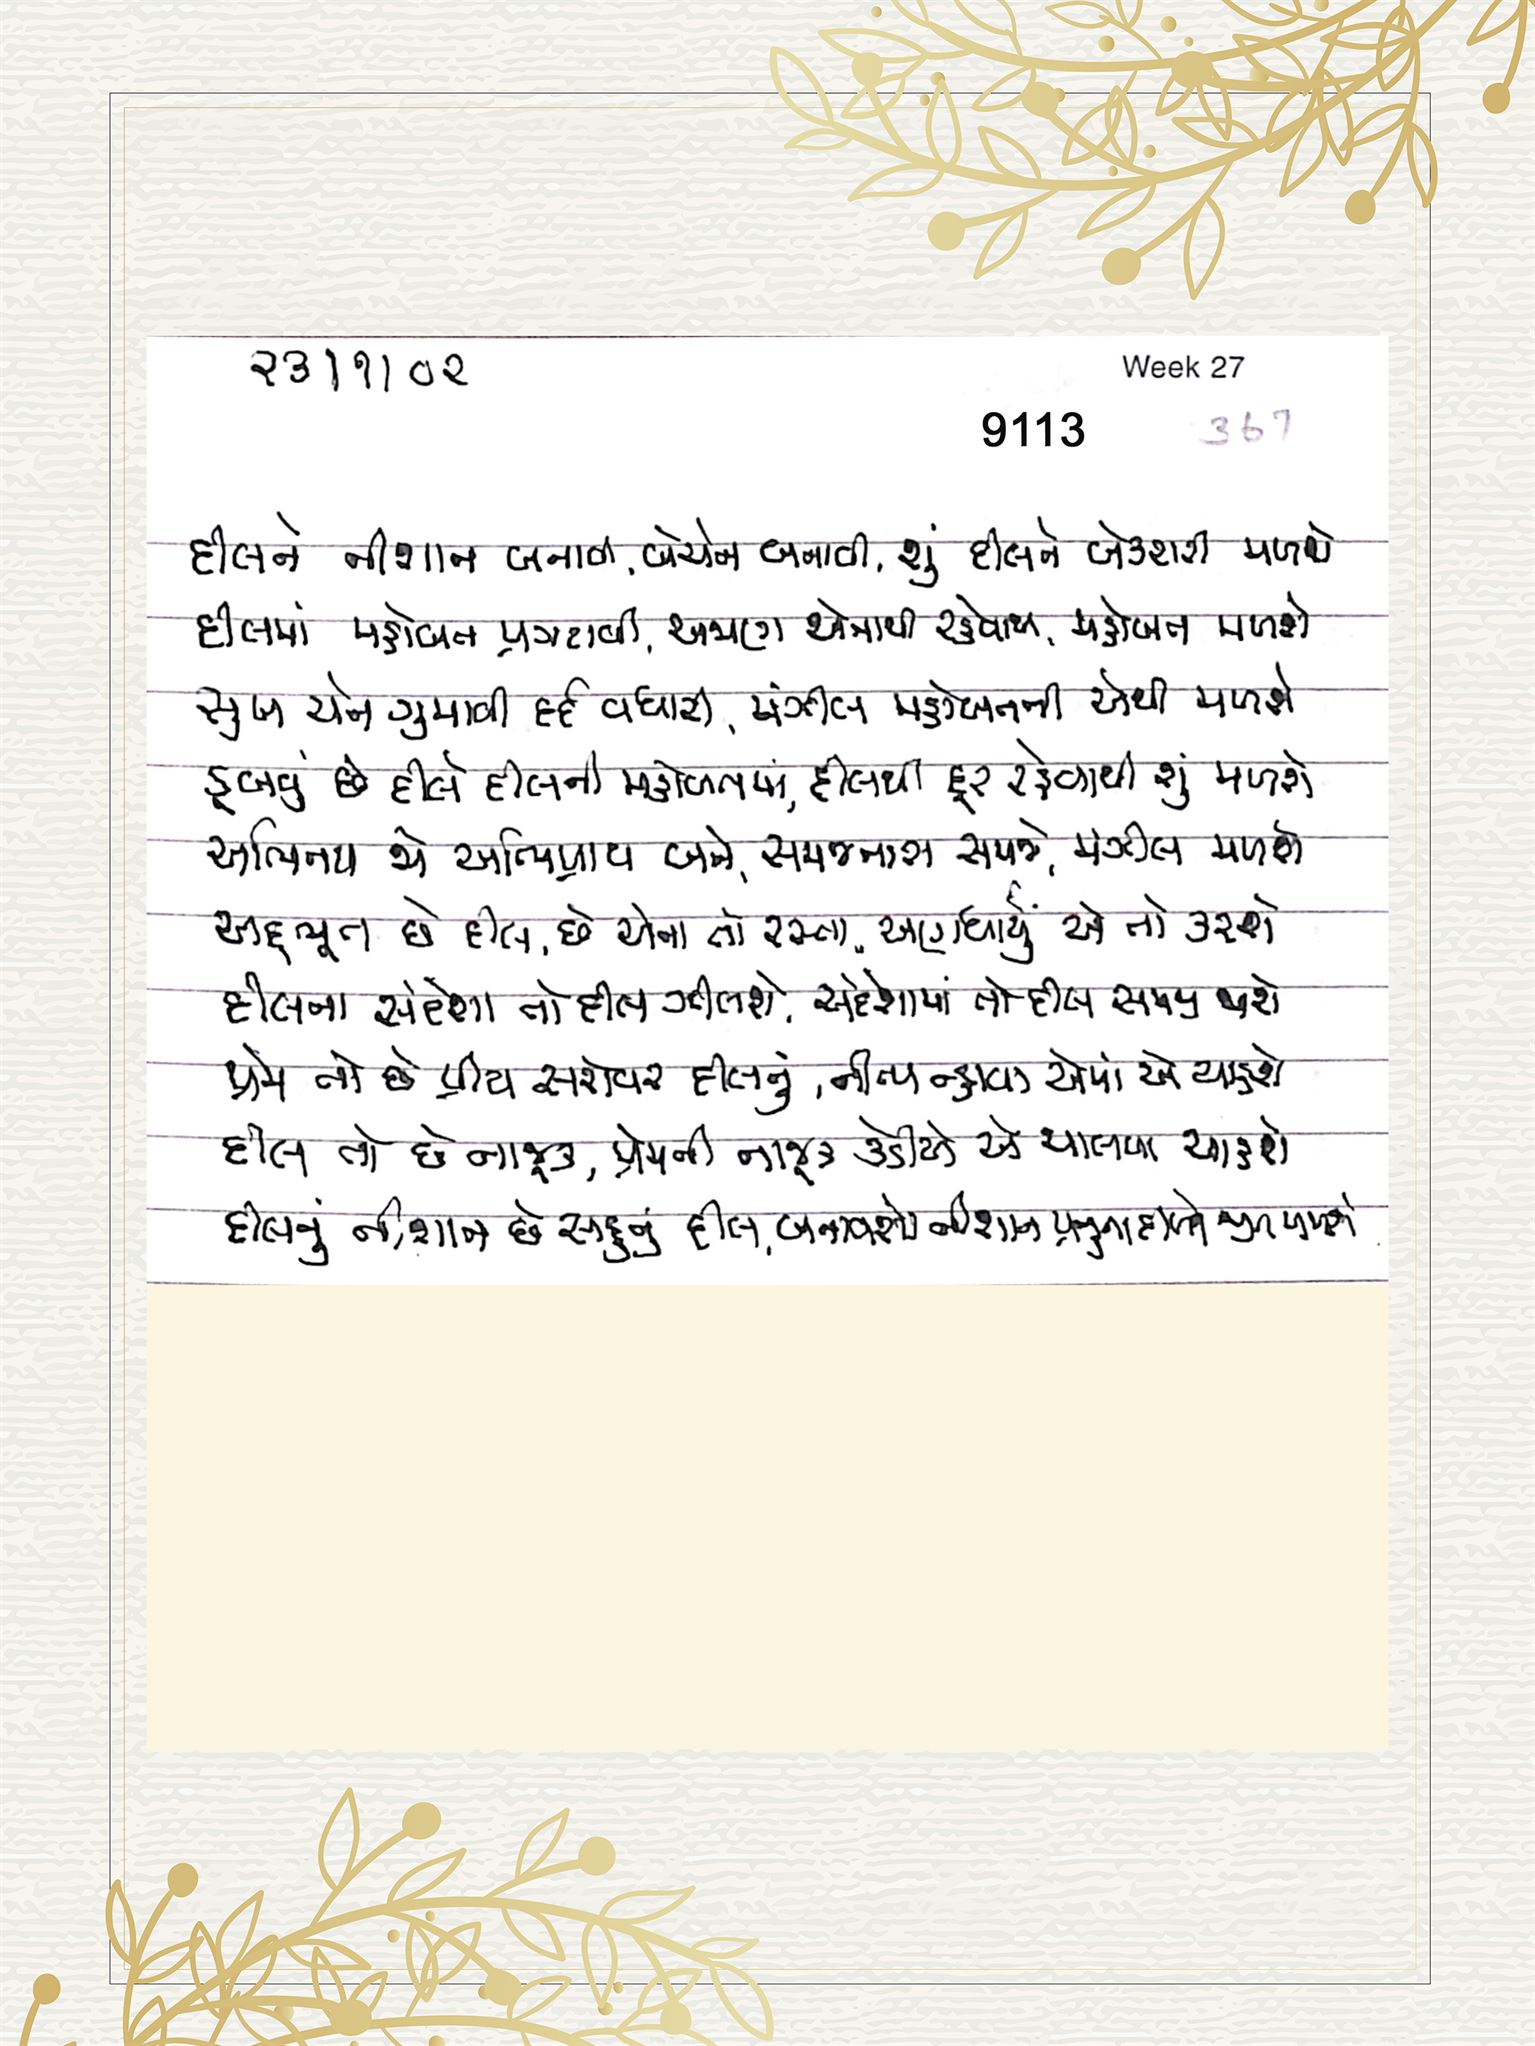 ૨૩|૧|૦૨
Week 27
9113
367
દીલને નીશાન બનાવી, બેચેન બનાવી, શું દીલને બેકરારી મળશે
દીલમાં મહોબત પ્રગટાવી, અજાણ એનાથી રહેવાથી, મહોબત મળશે
સુખ ચેન ગુમાવી દર્દ વધારી, મંઝીલ મહોબતની એથી મળશે
ડૂબવું છે દીલે દીલની મહોબતમાં, દીલથી દૂર રહેવાથી શું મળશે
અભિનય જે અભિપ્રાય બને, સમજનારા સમજે, મંઝીલ મળશે
અદ્દભૂત છે દીલ, છે એના તો રસ્તા, અણધાર્યું એ તો કરશે
દીલના સંદેશા તો દીલ ઝીલશે, સંદેશામાં તો દીલ સમજી જાશે
પ્રેમ તો છે પ્રીય સરોવર દીલનું, નીત્ય ન્હાવા એમાં એ ચાહશે
દીલ તો છે નાજૂક, પ્રેમની નાજૂક કેડીએ એ ચાલવા ચાહશે
દીલનું નીશાન છે સહુનું દીલ, બનાવશો નીશાન પ્રભુના દીલને